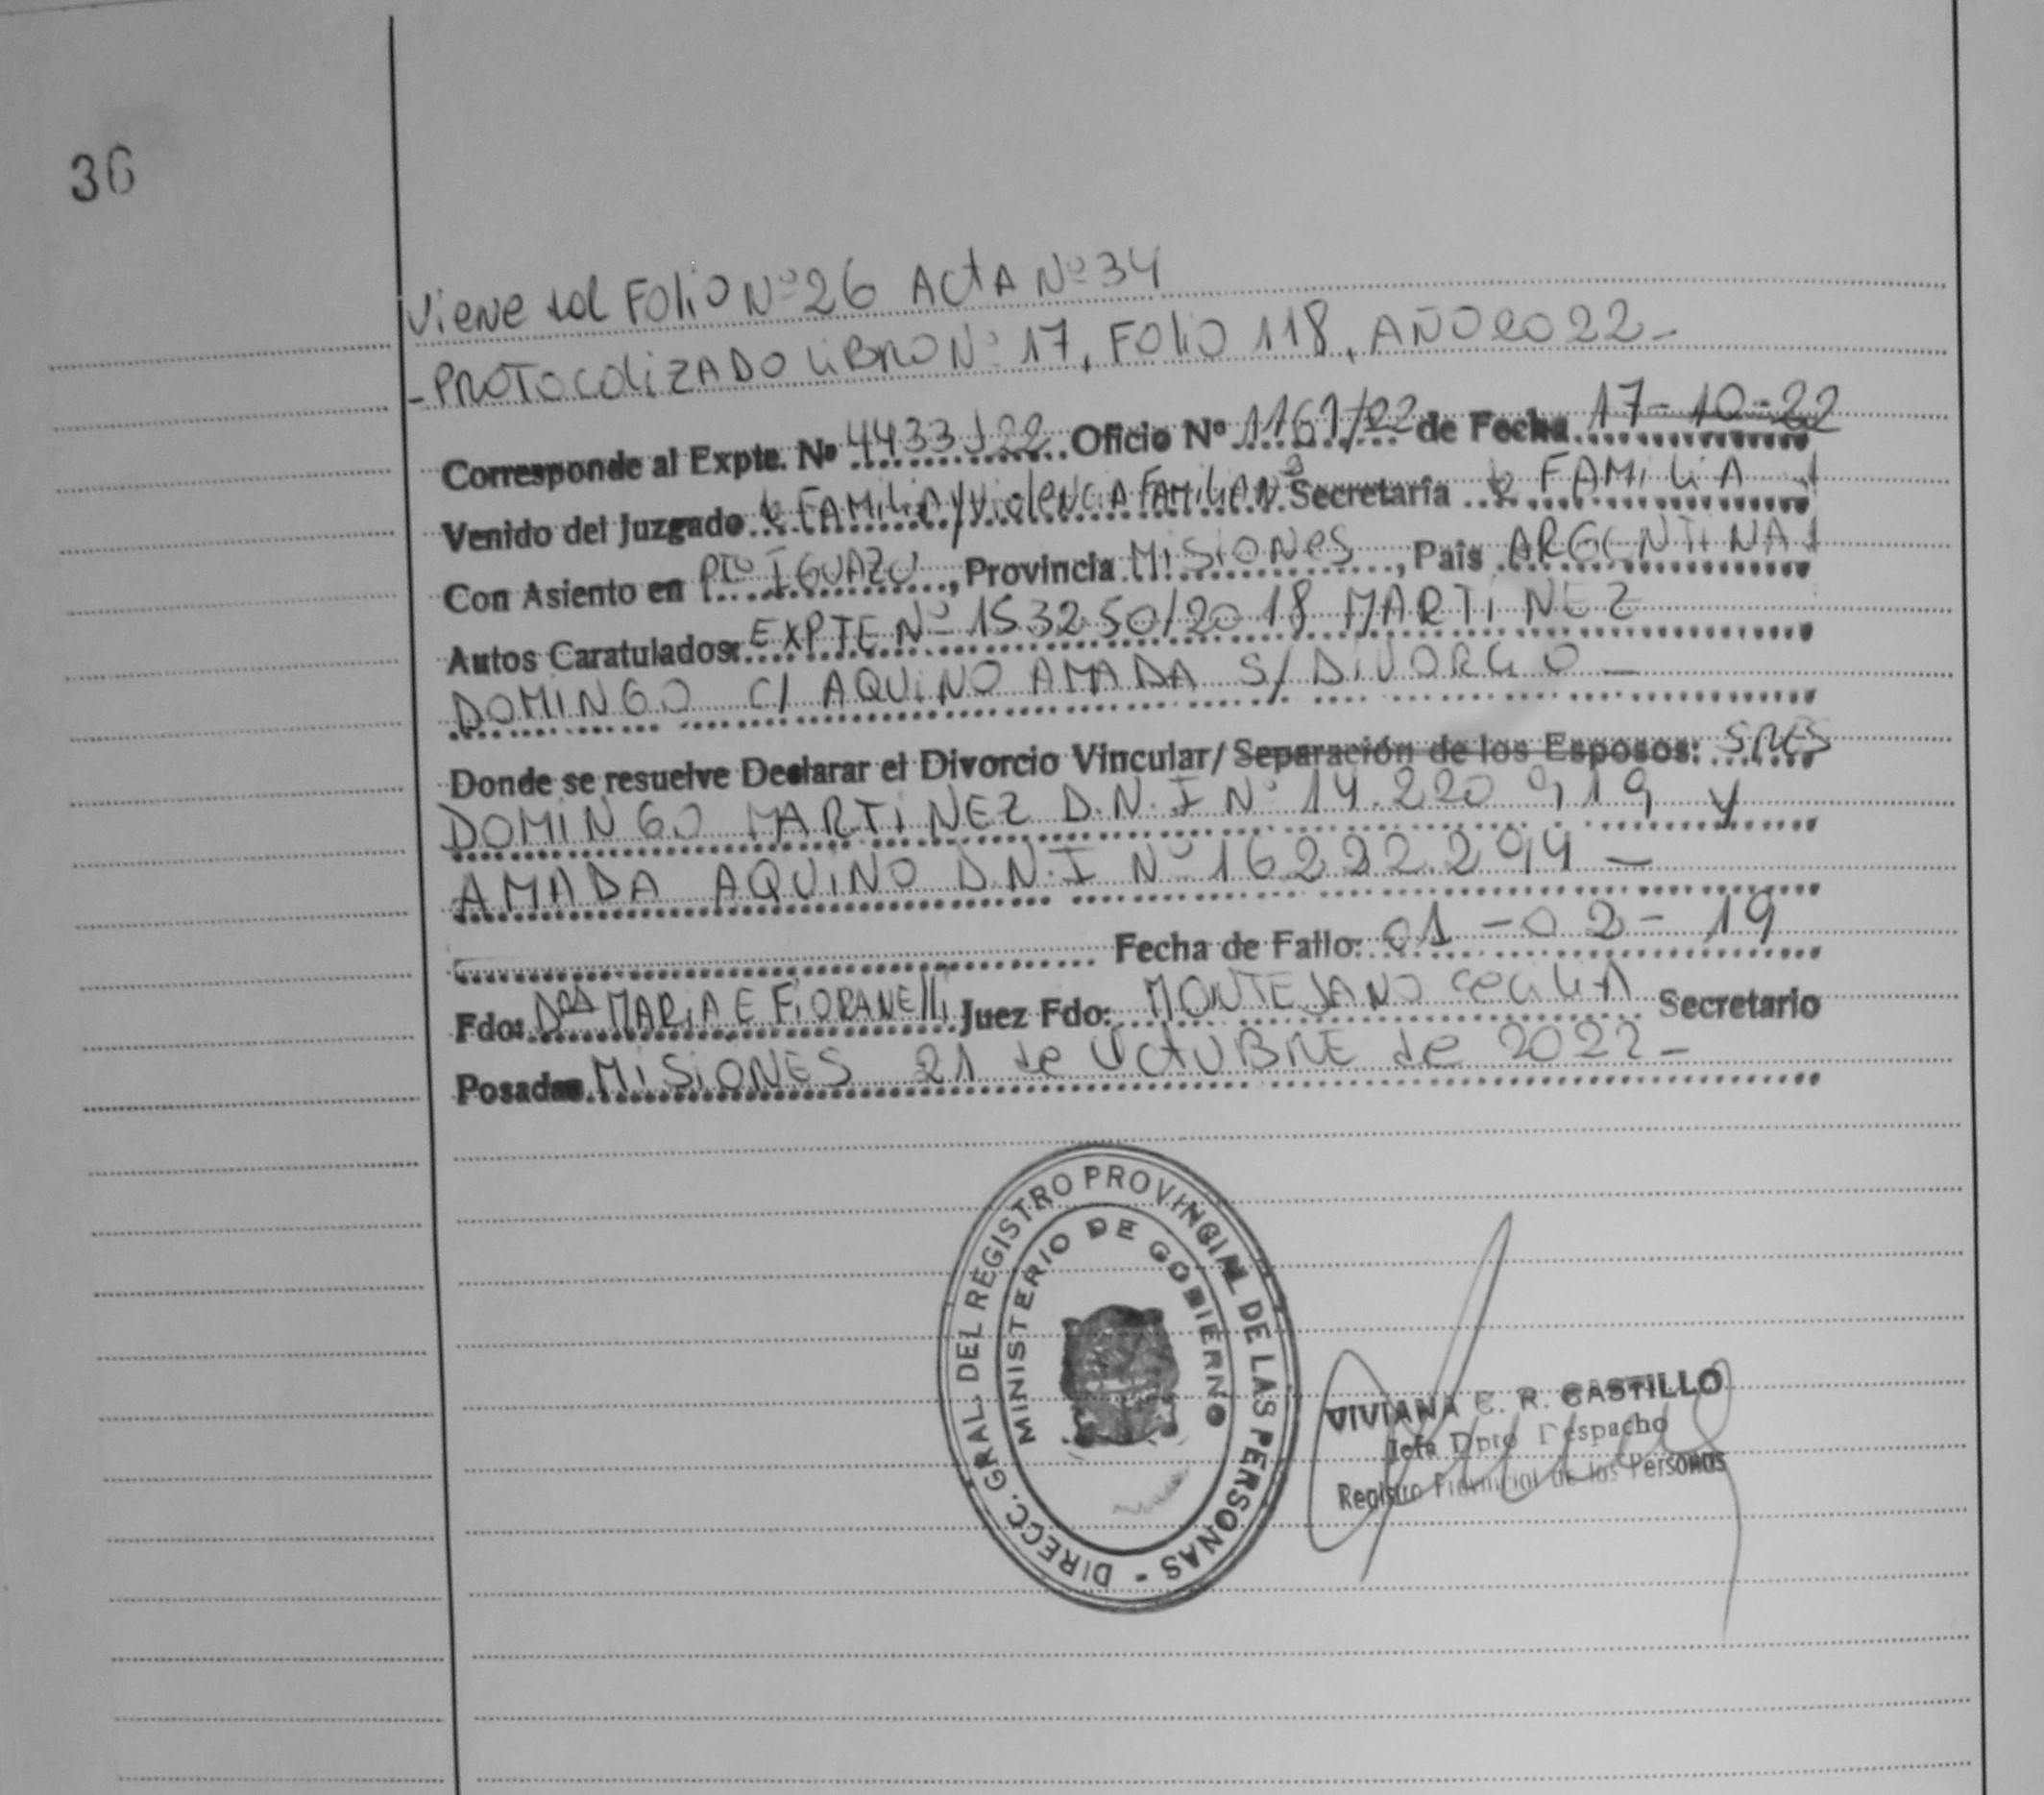 36
Viene del Folio Nº 26 ACtA Nº 34
- PROTOCOLIZADO LIBRO Nº 17, FOLIO 118, AÑO 2022 -
Corresponde al Expte. Nº 4433/22 Oficio Nº 1161/22 de Fecha 17-10-22
Venido del Juzgado de FAMILIA y ViolENCIA FAMILIAR Secretaría de FAMILIA
Con Asiento en Pto IGUAZU, Provincia MISIONES, País ARGENTINA
Autos Caratulados: EXPTE Nº 153250/2018 MARTINEZ
DOMINGO C/ AQUINO AMADA S/ DIVORCIO -
Donde se resuelve Declarar el Divorcio Vincular/ Separación de los Esposos: SRES
DOMINGO MARTINEZ D.N.I Nº 14.220 919 y
AMADA AQUINO D.N.I Nº 16.222.294 -
Fecha de Fallo: 01-02-19
Fdo: DRA MARIA E FIORANElli Juez Fdo: MONTEJANO CECILIA Secretario
Posadas MISIONES 21 de OctUBRE de 2022 -
DIRECC. GRAL. DEL REGISTRO PROVINCIAL DE LAS PERSONAS -
MINISTERIO DE GOBIERNO
VIVIANA C. R. CASTILLO
Jefa Dpto Despacho
Registro Provincial de las Personas